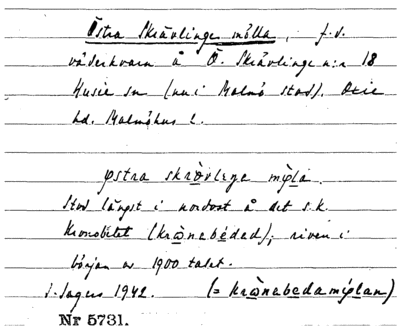 Östra Skrävlinge mölla, f.d.
väderkvarn å Ö. Skrävlinge n:r 18
Husie sn (nu i Malmö stad). Oxie
hd. Malmöhus l.
østra skrävlıŋe mø̀la.
Stod längst i nordost å det s.k.
Kronobetet (krònebèded); riven i
början av 1900 talet.
I. Ingers 1942. (= krònebedamø̀lan)
Nr 5731.